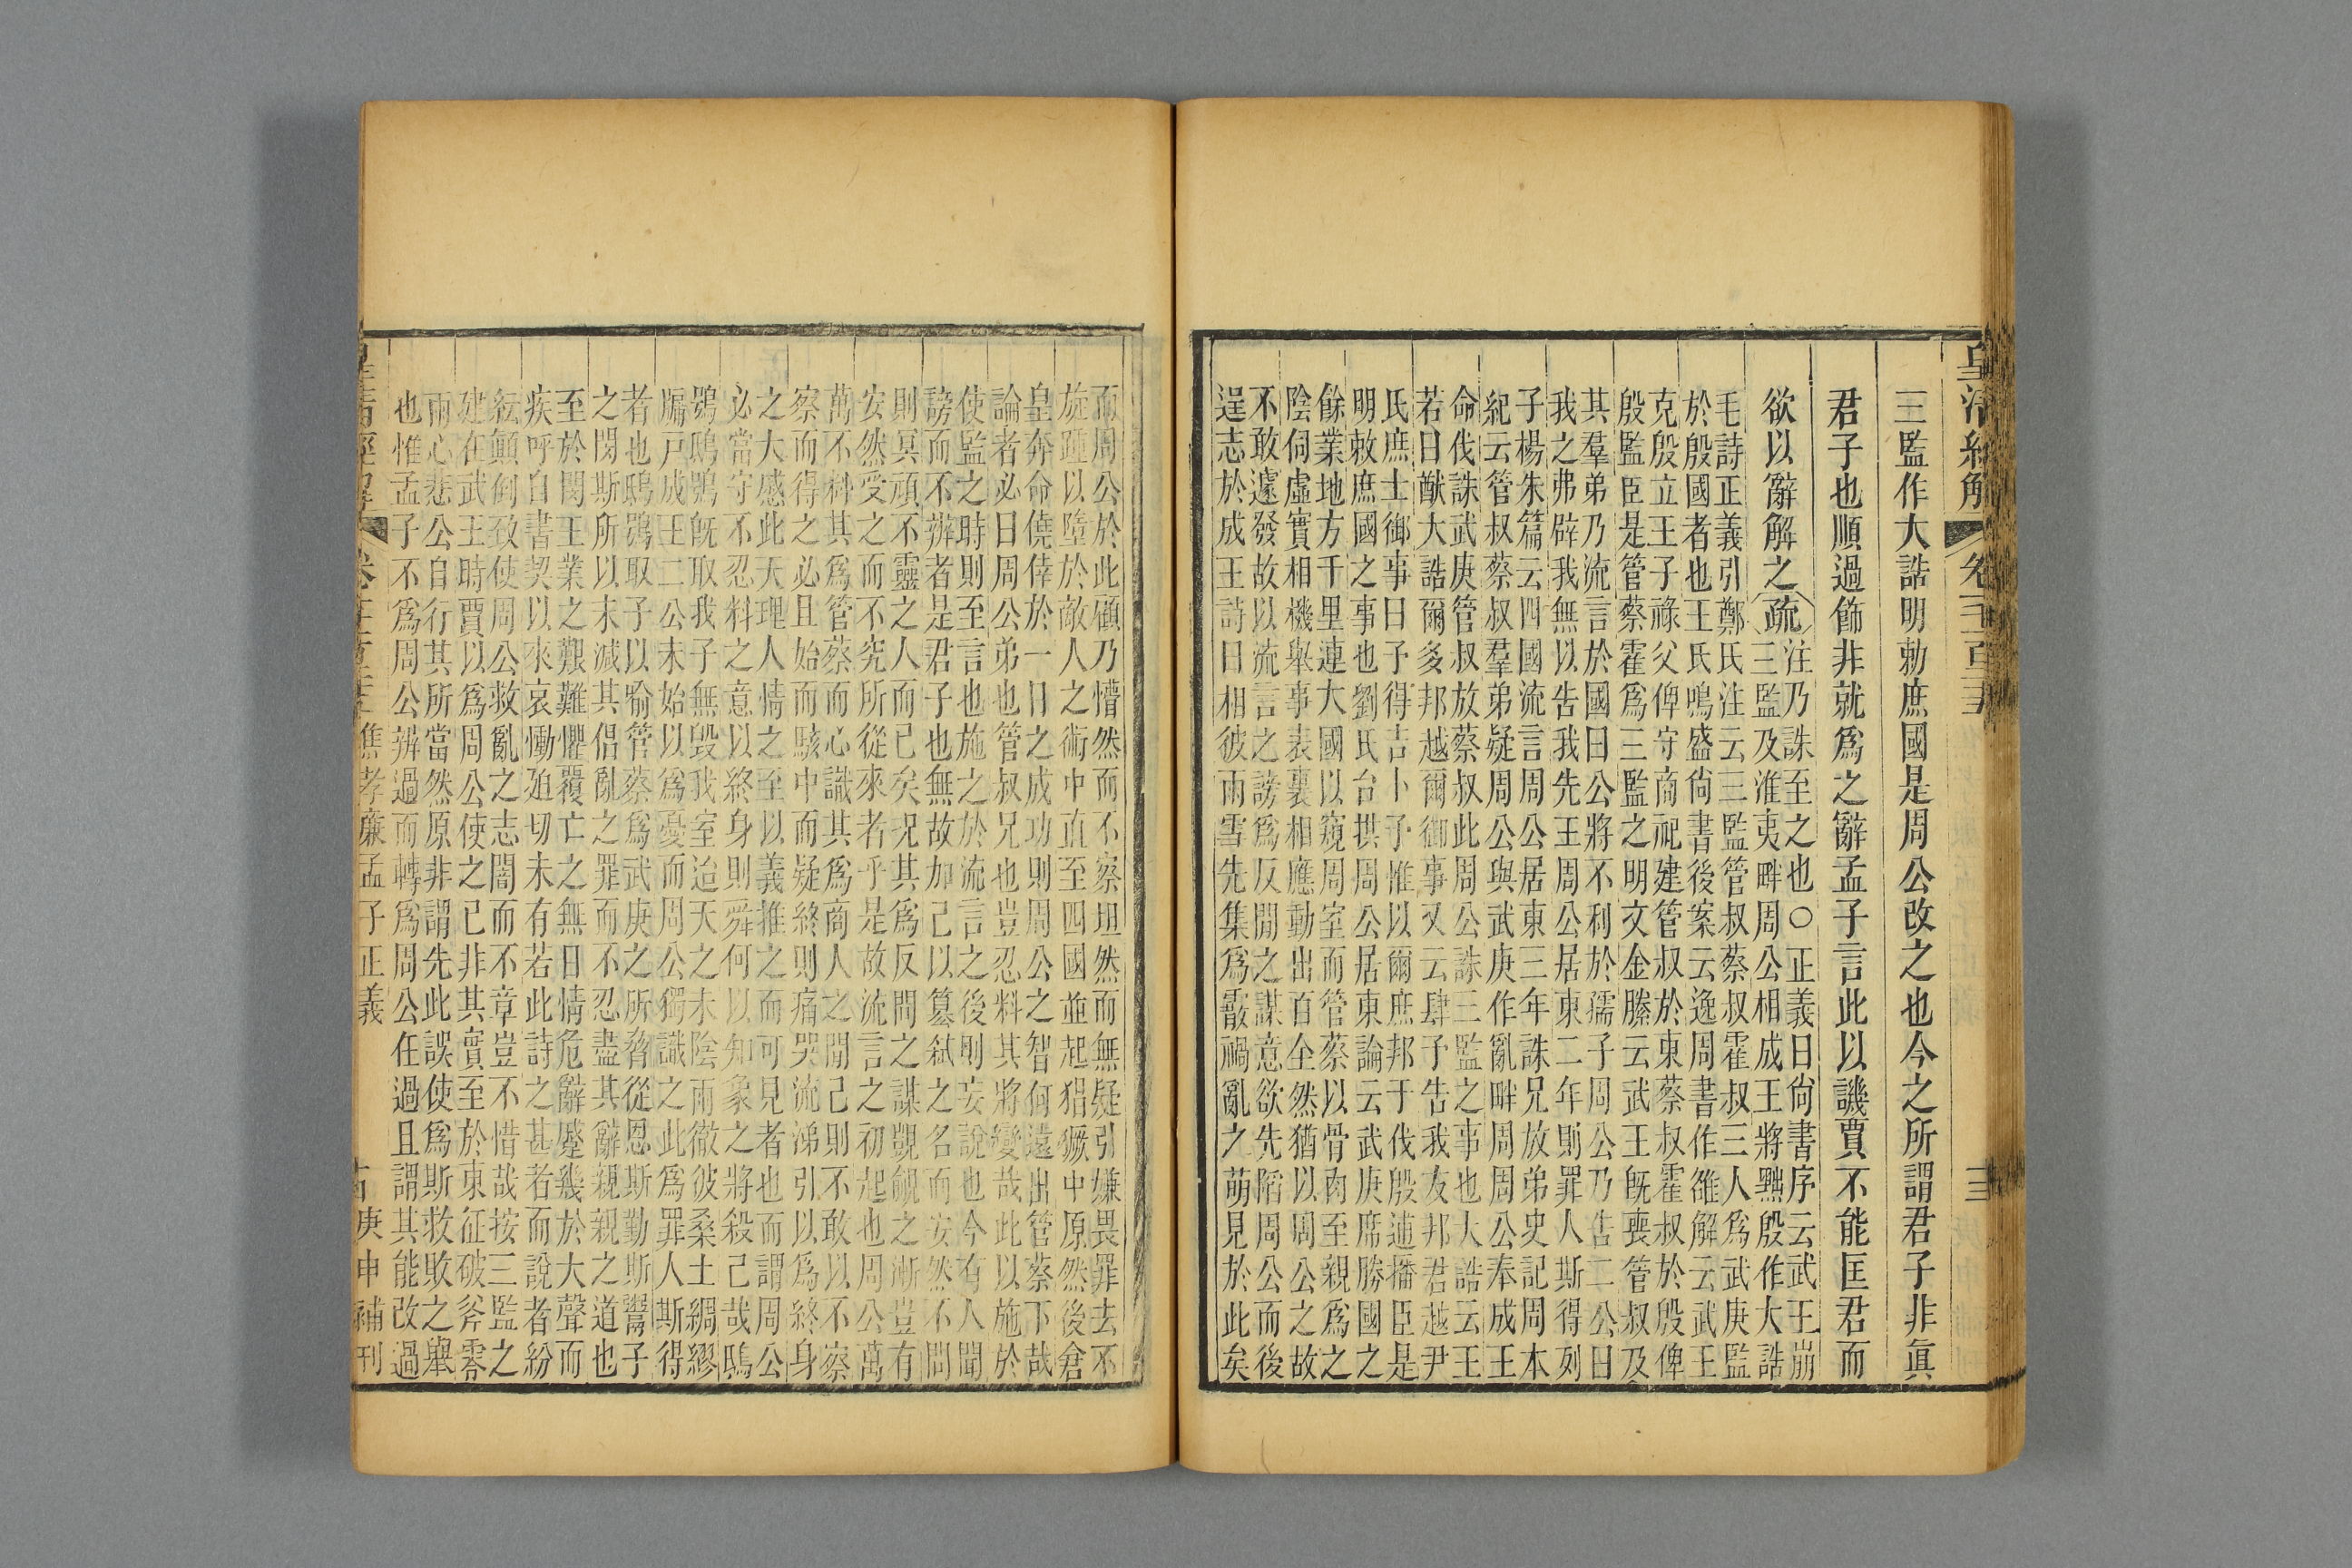 三監作大誥明勅庶國是周公改之也今之所謂君子非眞
君子也順過飾非就爲之辭孟子言此以譏賈不能匡君而
欲以辭解之疏
注乃誅至之也○正義曰尙書序云武王崩
三監及淮夷畔周公相成王將黜殷作大誥
毛詩正義引鄭氏注云三監管叔蔡叔霍叔三人爲武庚監
於殷國者也王氏鳴盛尙書後案云逸周書作雒解云武王
克殷立王子祿父俾守商祀建管叔於東蔡叔霍叔於殷俾
殷監臣是管蔡霍爲三監之明文金縢云武王旣喪管叔及
其羣弟乃流言於國曰公將不利於孺子周公乃告二公曰
我之弗辟我無以告我先王周公居東二年則罪人斯得列
子楊朱篇云四國流言周公居東三年誅兄放弟史記周本
紀云管叔蔡叔羣弟疑周公與武庚作亂畔周周公奉成王
命伐誅武庚管叔放蔡叔此周公誅三監之事也大誥云王
若曰猷大誥爾多邦越爾御事又云肆予告我友邦君越尹
氏庶士御事曰予得吉卜予惟以爾庶邦于伐殷逋播臣是
明敕庶國之事也劉氏台拱周公居東論云武庚席勝國之
餘業地方千里連大國以窺周室而管蔡以骨肉至親爲之
陰伺虛實相機舉事表裏相應動出百全然猶以周公之故
不敢遽發故以流言之謗爲反閒之謀意欲先陷周公而後
逞志於成王詩曰相彼雨雪先集爲霰禍亂之萌見於此矣
而周公於此顧乃懵然而不察坦然而無疑引嫌畏罪去不
旋踵以墮於敵人之術中直至四國並起猖獗中原然後倉
皇奔命僥倖於一日之成功則周公之智何遠出管蔡下哉
論者必曰周公弟也管叔兄也豈忍料其將變哉此以施於
使監之時則至言也施之於流言之後則妄說也今有人聞
謗而不辨者是君子也無故加己以篡弑之名而安然不問
則冥頑不靈之人而已矣況其爲反間之謀覬覦之漸豈有
安然受之而不究所從來者乎是故流言之初起也周公萬
萬不料其爲管蔡而心識其爲商人之閒己則不敢以不察
察而得之必且始而駭中而疑終則痛哭流涕引以爲終身
之大感此天理人情之至以義推之而可見者也而謂周公
必當守不忍料之意以終身則舜何以知象之將殺己哉鴟
鴞鴟鴞旣取我子無毀我室迨天之未陰雨徹彼桑土綢繆
牖戶成王二公未始以爲憂而周公獨識之此爲罪人斯得
者也鴟鴞取子以喻管蔡爲武庚之所脅從恩斯勤斯鬻子
之閔斯所以末減其倡亂之罪而不忍盡其辭親親之道也
至於閔王業之艱難懼覆亡之無日情危辭蹙幾於大聲而
疾呼自書契以來哀慟廹切未有若此詩之甚者而說者紛
紜顛倒致使周公救亂之志闇而不章豈不惜哉按三監之
建在武王時賈以爲周公使之已非其實至於東征破斧零
雨心悲公自行其所當然原非謂先此誤使爲斯救敗之舉
也惟孟子不爲周公辨過而轉爲周公任過且謂其能改過
焦孝廉孟子正義
庚申補刊